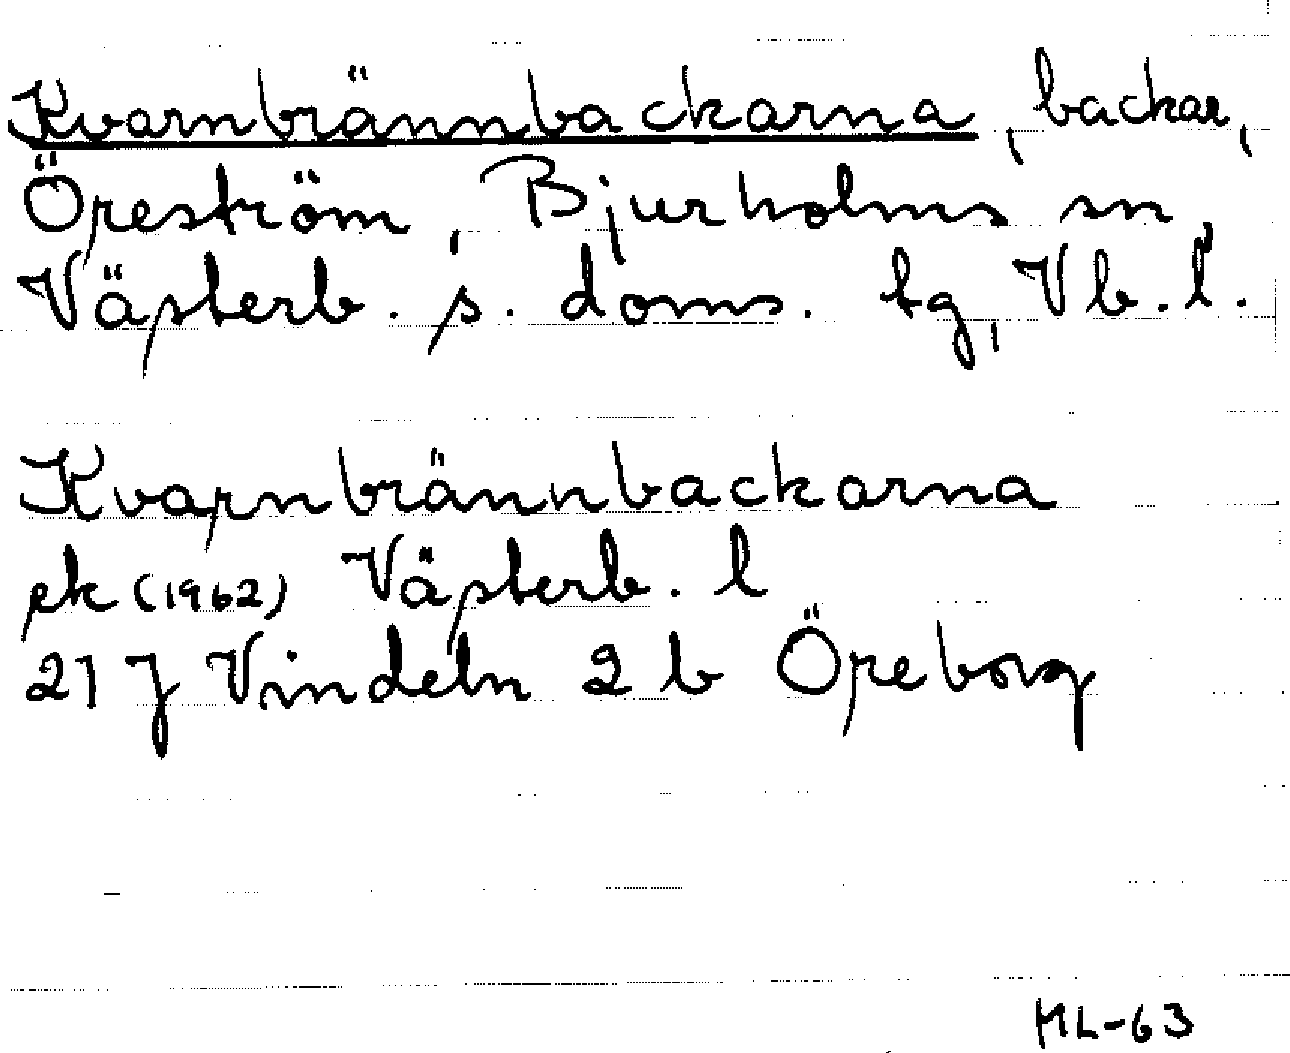 Kvarnbrännbackarna, backar,
Öreström, Bjurholms sn,
Västerb. s. doms. tg, Vb. l.
Kvarnbrännbackarna
ek (1962) Västerb. l
21 J Vindeln 2 b Öreborg
ML-63